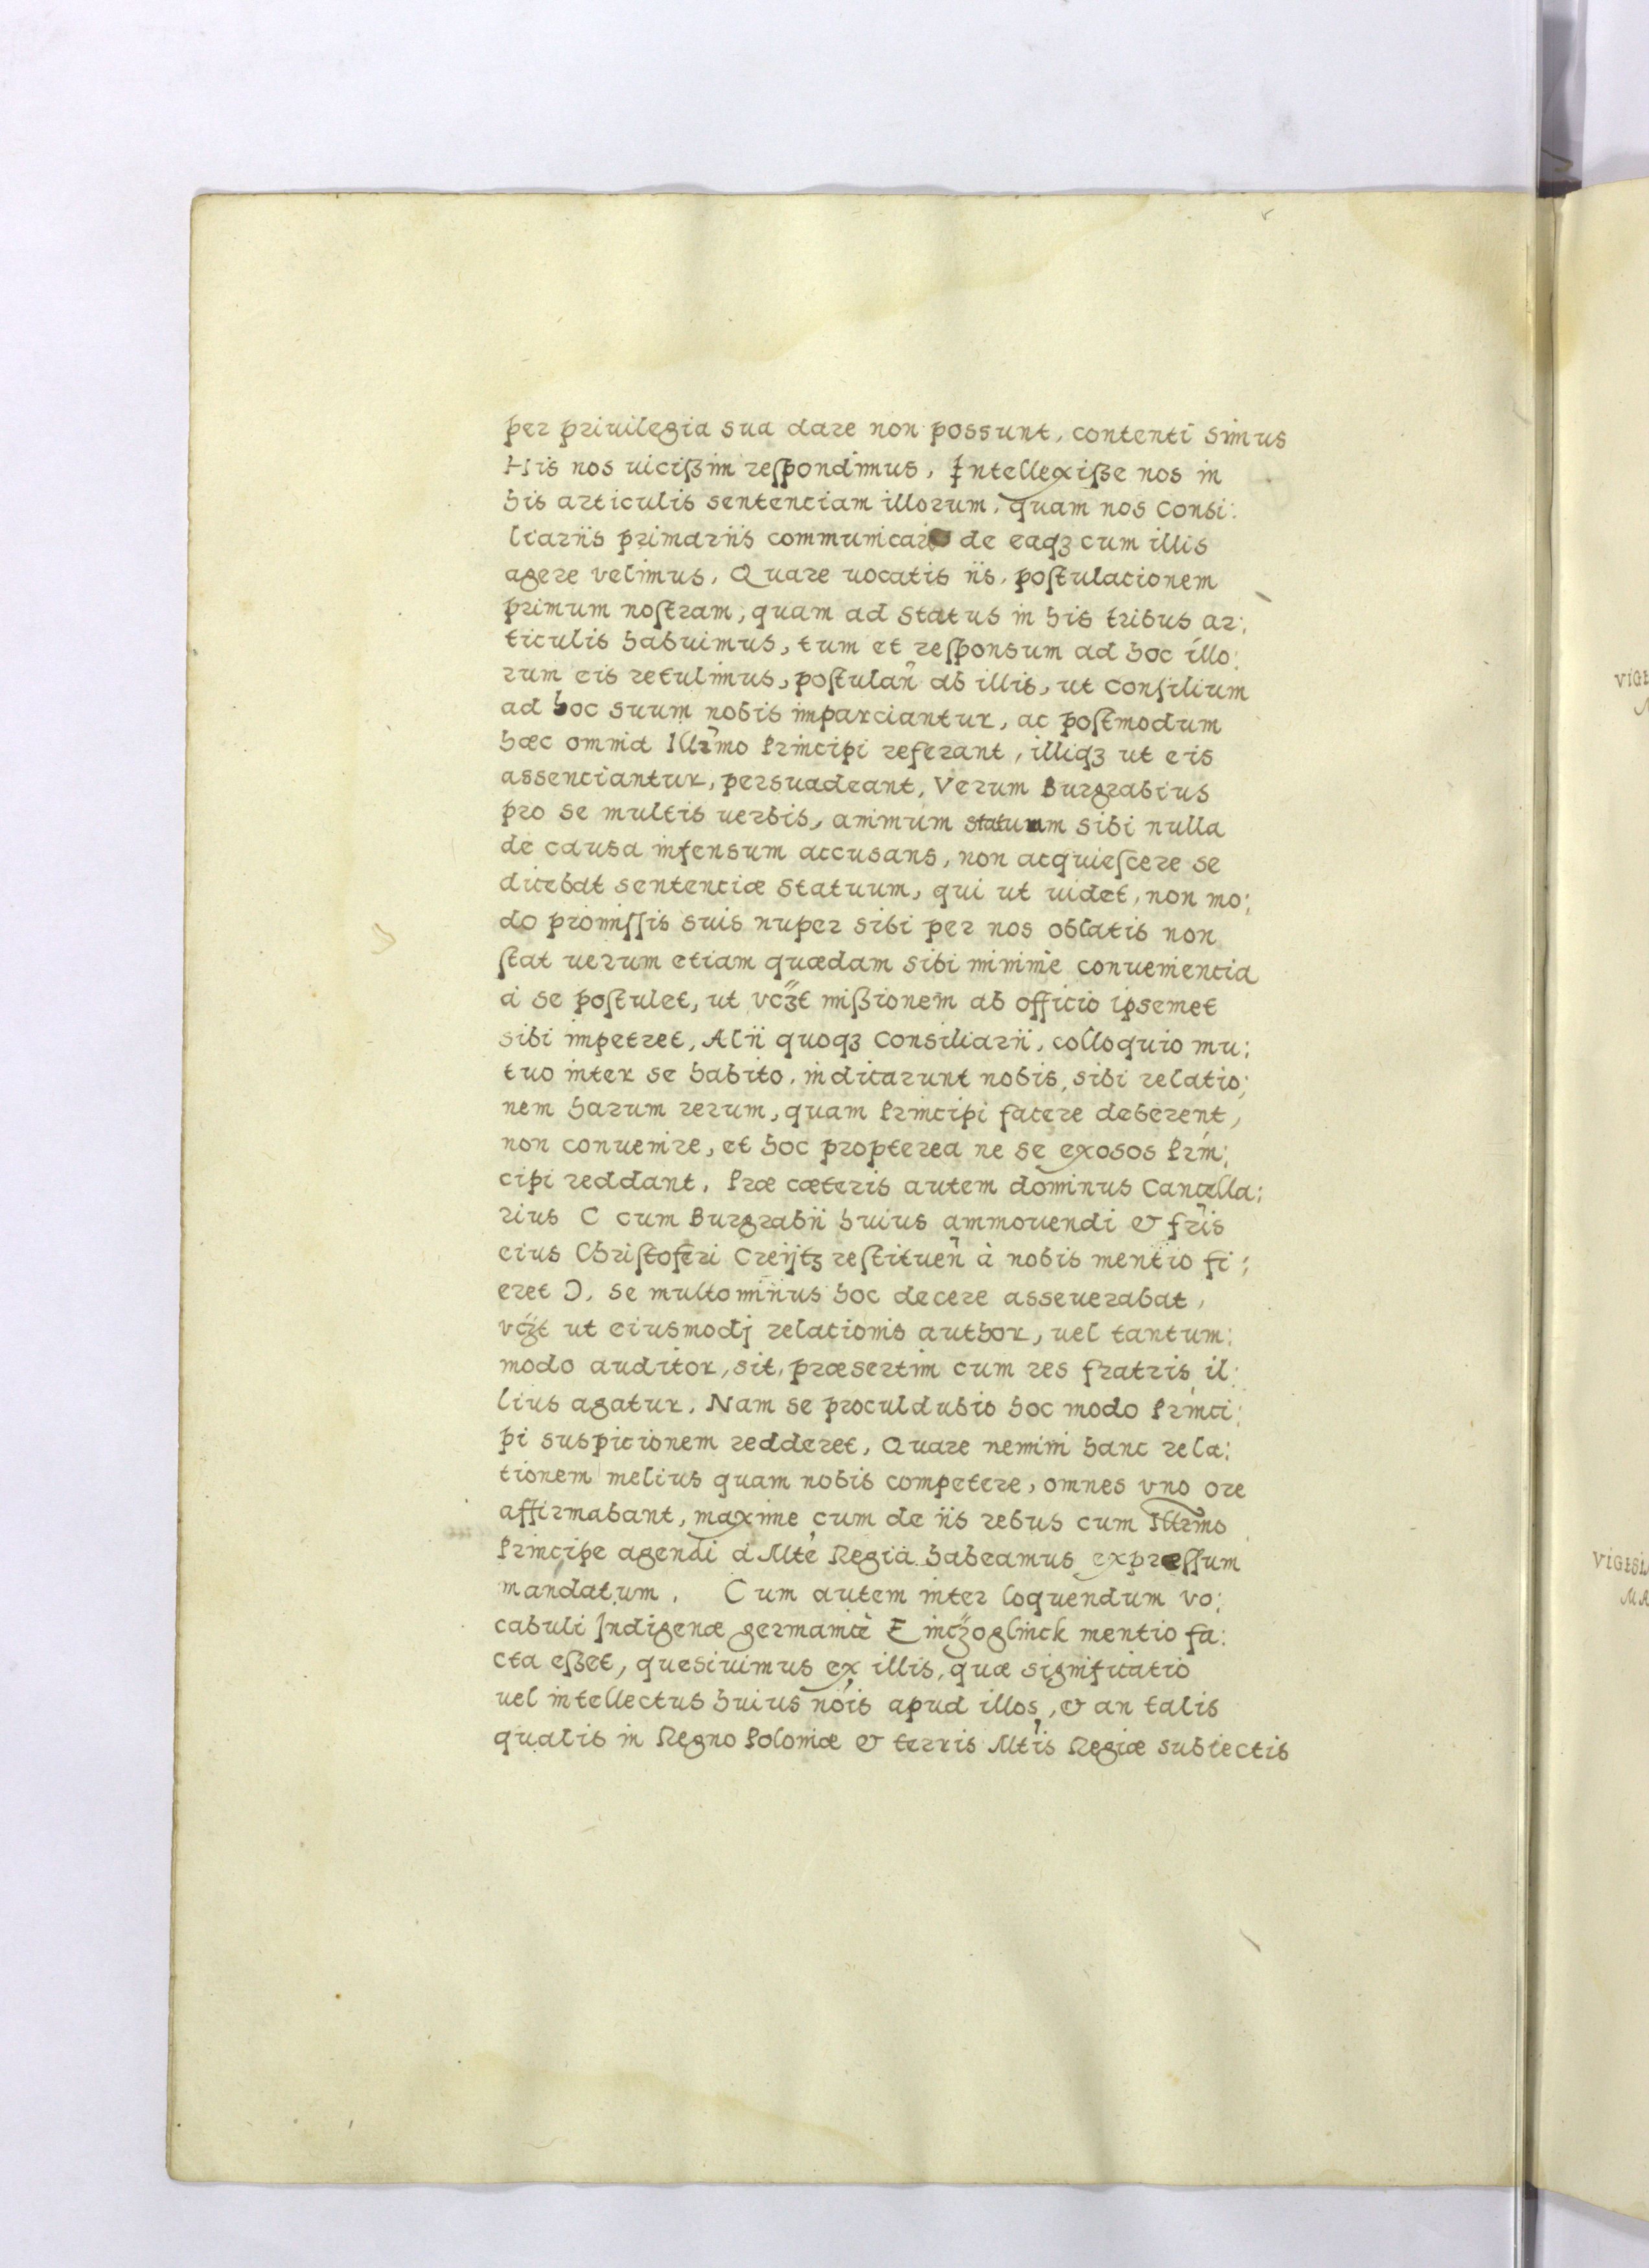 per priuilegia sua dare non possunt, contenti simus
His nos uicißim respondimus, Intellexiße nos in
his articulis sentenciam illorum, quam nos Consi:
liariis primariis communicari de eaqꝫ cum illis
agere velimus, Quare uocatis iis, postulacionem
primum nostram, quam ad Status in his tribus ar:
ticulis habuimus, tum et responsum ad hoc illo:
rum eis retulimus, postulañ ab illis, ut Consilium
ad hoc suum nobis imparciantur, ac postmodum
hæc omnia Illr̃mo Principi referant, illiqꝫ ut eis
assenciantur, persuadeant, Verum Burgrabius
pro se multis uerbis, animum statuum sibi nulla
de causa infensum accusans, non acquiescere se
dicebat sentenciæ Statuum, qui ut uidet, non mo:
do promissis suis nuper sibi per nos oblatis non
stat uerum etiam quædam sibi minimè conueniencia
à se postulet, ut vcꝫt mißionem ab officio ipsemet
sibi impetret, Alii quoqꝫ Consiliarii, colloquio mu:
tuo inter se habito, indicarunt nobis, sibi relatio:
nem harum rerum, quam Principi facere deberent,
non conuenire, et hoc propterea ne se exosos Prin:
cipi reddant, Præ cæteris autem dominus Cancella:
rius C cum Burgrabii huius ammouendi & fr̃is
eius Christoferi Creijtz restitueñ à nobis mentio fi:
eret Ɔ, se multominus hoc decere asseuerabat,
vcꝫt ut eiusmodj relacionis author, uel tantum:
modo auditor, sit, præsertim cum res fratris il:
lius agatur, Nam se proculdubio hoc modo Princi:
pi suspicionem redderet, Quare nemini hanc rela:
tionem melius quam nobis competere, omnes vno ore
affirmabant, maxime cum de iis rebus cum Illr̃mo
Principe agendi a Mte Regia habeamus expressum
mandatum. Cum autem inter loquendum vo:
cabuli Indigenæ germanicè Einczoglinck mentio fa:
cta eßet, quesiuimus ex illis, quæ significatio
uel intellectus huius nois apud illos, & an talis
qualis in Regno Poloniæ & terris Mtis Regiæ subiectis